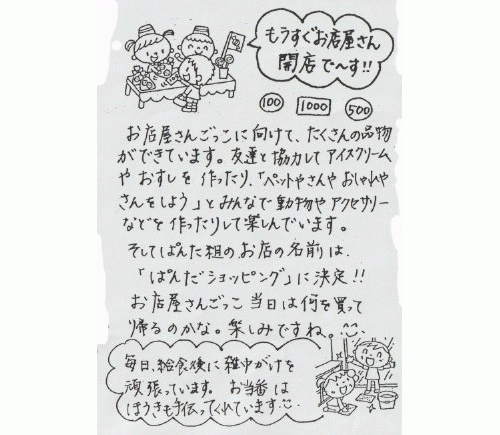 もうすぐお店屋さん
開店で〜す!!
100 1000 500
お店屋さんごっこに向けて、たくさんの品物
ができています。友達と協力してアイスクリーム
や おすしを 作ったり、「ペットやさんや おしゃれや
さんをしよう」とみんなで動物や アクセサリー
などを 作ったりして楽しんでいます。
そしてぱんだ組のお店の名前は、
「ぱんだショッピング」に決定!!
お店屋さんごっこ 当日は何を買って
帰るのかな。楽しみですね
毎日、給食後に雑巾がけを
頑張っています。 お当番は
ほうきも手伝ってくれています